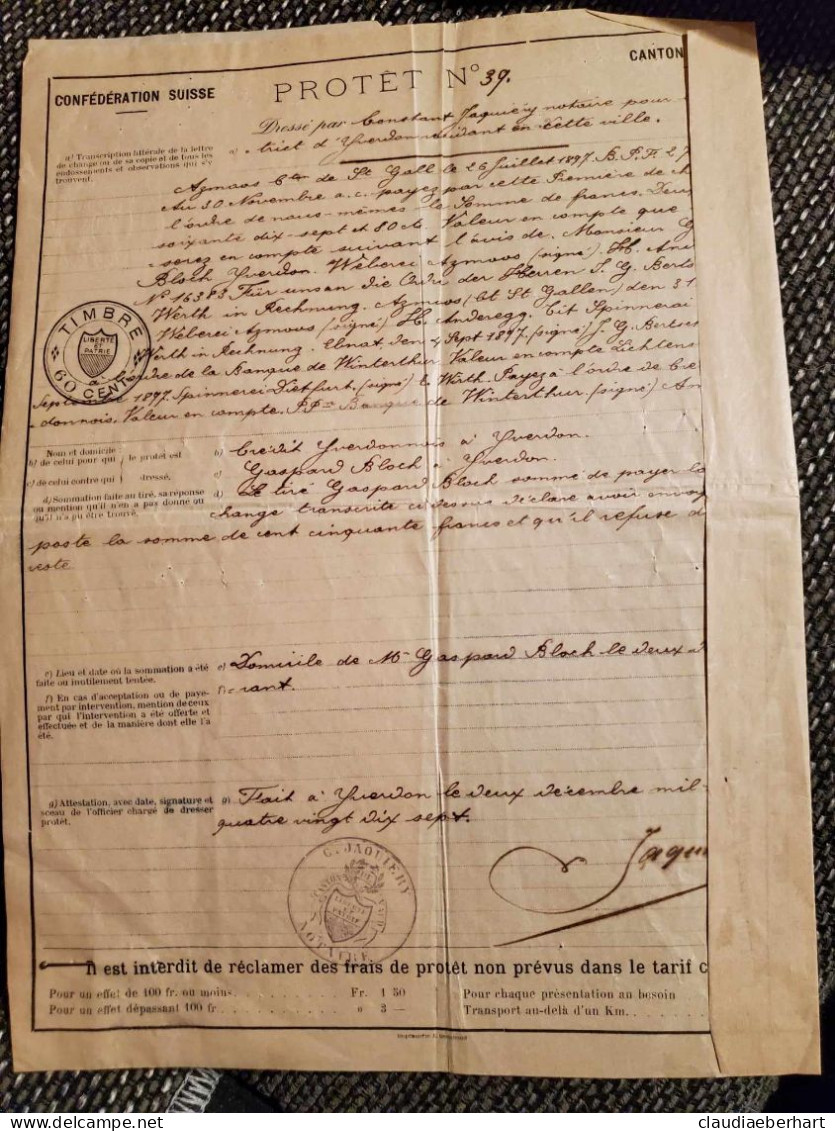 CONFÉDÉRATION SUISSE
PROTÊT N° 39.
CANTON
Dressé par Constant Jaquiéry notaire pour
a) trict d'Yverdon résidant en cette ville.
a) Transcription littérale de la lettre
de change ou de sa copie et de tous les
endossements et observations qui s'y
trouvent.
Azmoos Cton de St Gall le 26 Juillet 1897. B. P. F. 27
Au 30 Novembre a. c. payez par cette Première de ch
l'ordre de nous-mêmes la Somme de francs. Deux
soixante dix-sept et 80 cts Valeur en compte que
serez en compte suivant l'avis de. Monsieur G
Bloch Yverdon. Weberei Azmoos (signé) H. And
N° 16383 Für uns an die Ordre der Herren J. G. Berts
Werth in Rechnung. Azmoos (Ct St Gallen) den 31
Weberei Azmoos (signé) H. Anderegg. Cit Spinnerei
Werth in Rechnung. Ebnat den 4 Sept 1897. (signé) J. G. Berts
l'ordre de la Banque de Winterthur. Valeur en compte Lichtens
Septembre 1897. Spinnerei Dietfurt. (signé) Werth. Payez à l'ordre de Cré
donnois. Valeur en compte. Banque de Winterthur. (signé) An
TIMBRE
LIBERTÉ
ET
PATRIE
à
60 CENT.
Nom et domicile:
b) de celui pour qui
c) de celui contre qui
le protêt est
dressé.
b) Crédit Yverdonnois à Yverdon.
c) Gaspard Bloch à Yverdon.
d) Sommation faite au tiré, sa réponse
ou mention qu'il n'en a pas donné ou
qu'il n'a pu être trouvé.
d) Le tiré Gaspard Bloch sommé de payer la
change transcrite ci dessus déclare avoir envoy
poste la somme de cent cinquante francs et qu'il refuse d
reste
e) Lieu et date où la sommation a été
faite ou inutilement tentée.
e) Domicile de Mr Gaspard Bloch le deux d
courant.
f) En cas d'acceptation ou de paye-
ment par intervention, mention de ceux
par qui l'intervention a été offerte et
effectuée et de la manière dont elle l'a
été.
g) Attestation, avec date, signature et
sceau de l'officier chargé de dresser
protêt.
g) Fait à Yverdon le deux décembre mil-
quatre vingt dix sept.
Jaqui
C. JAQUIÉRY
CANTON DE VAUD
LIBERTÉ
ET
PATRIE
NOTAIRE
Il est interdit de réclamer des frais de protêt non prévus dans le tarif c
Pour un effet de 100 fr. ou moins. Fr. 1 50
Pour un effet dépassant 100 fr. » 3 —
Pour chaque présentation au besoin
Transport au-delà d'un Km.
claudiaeberhart